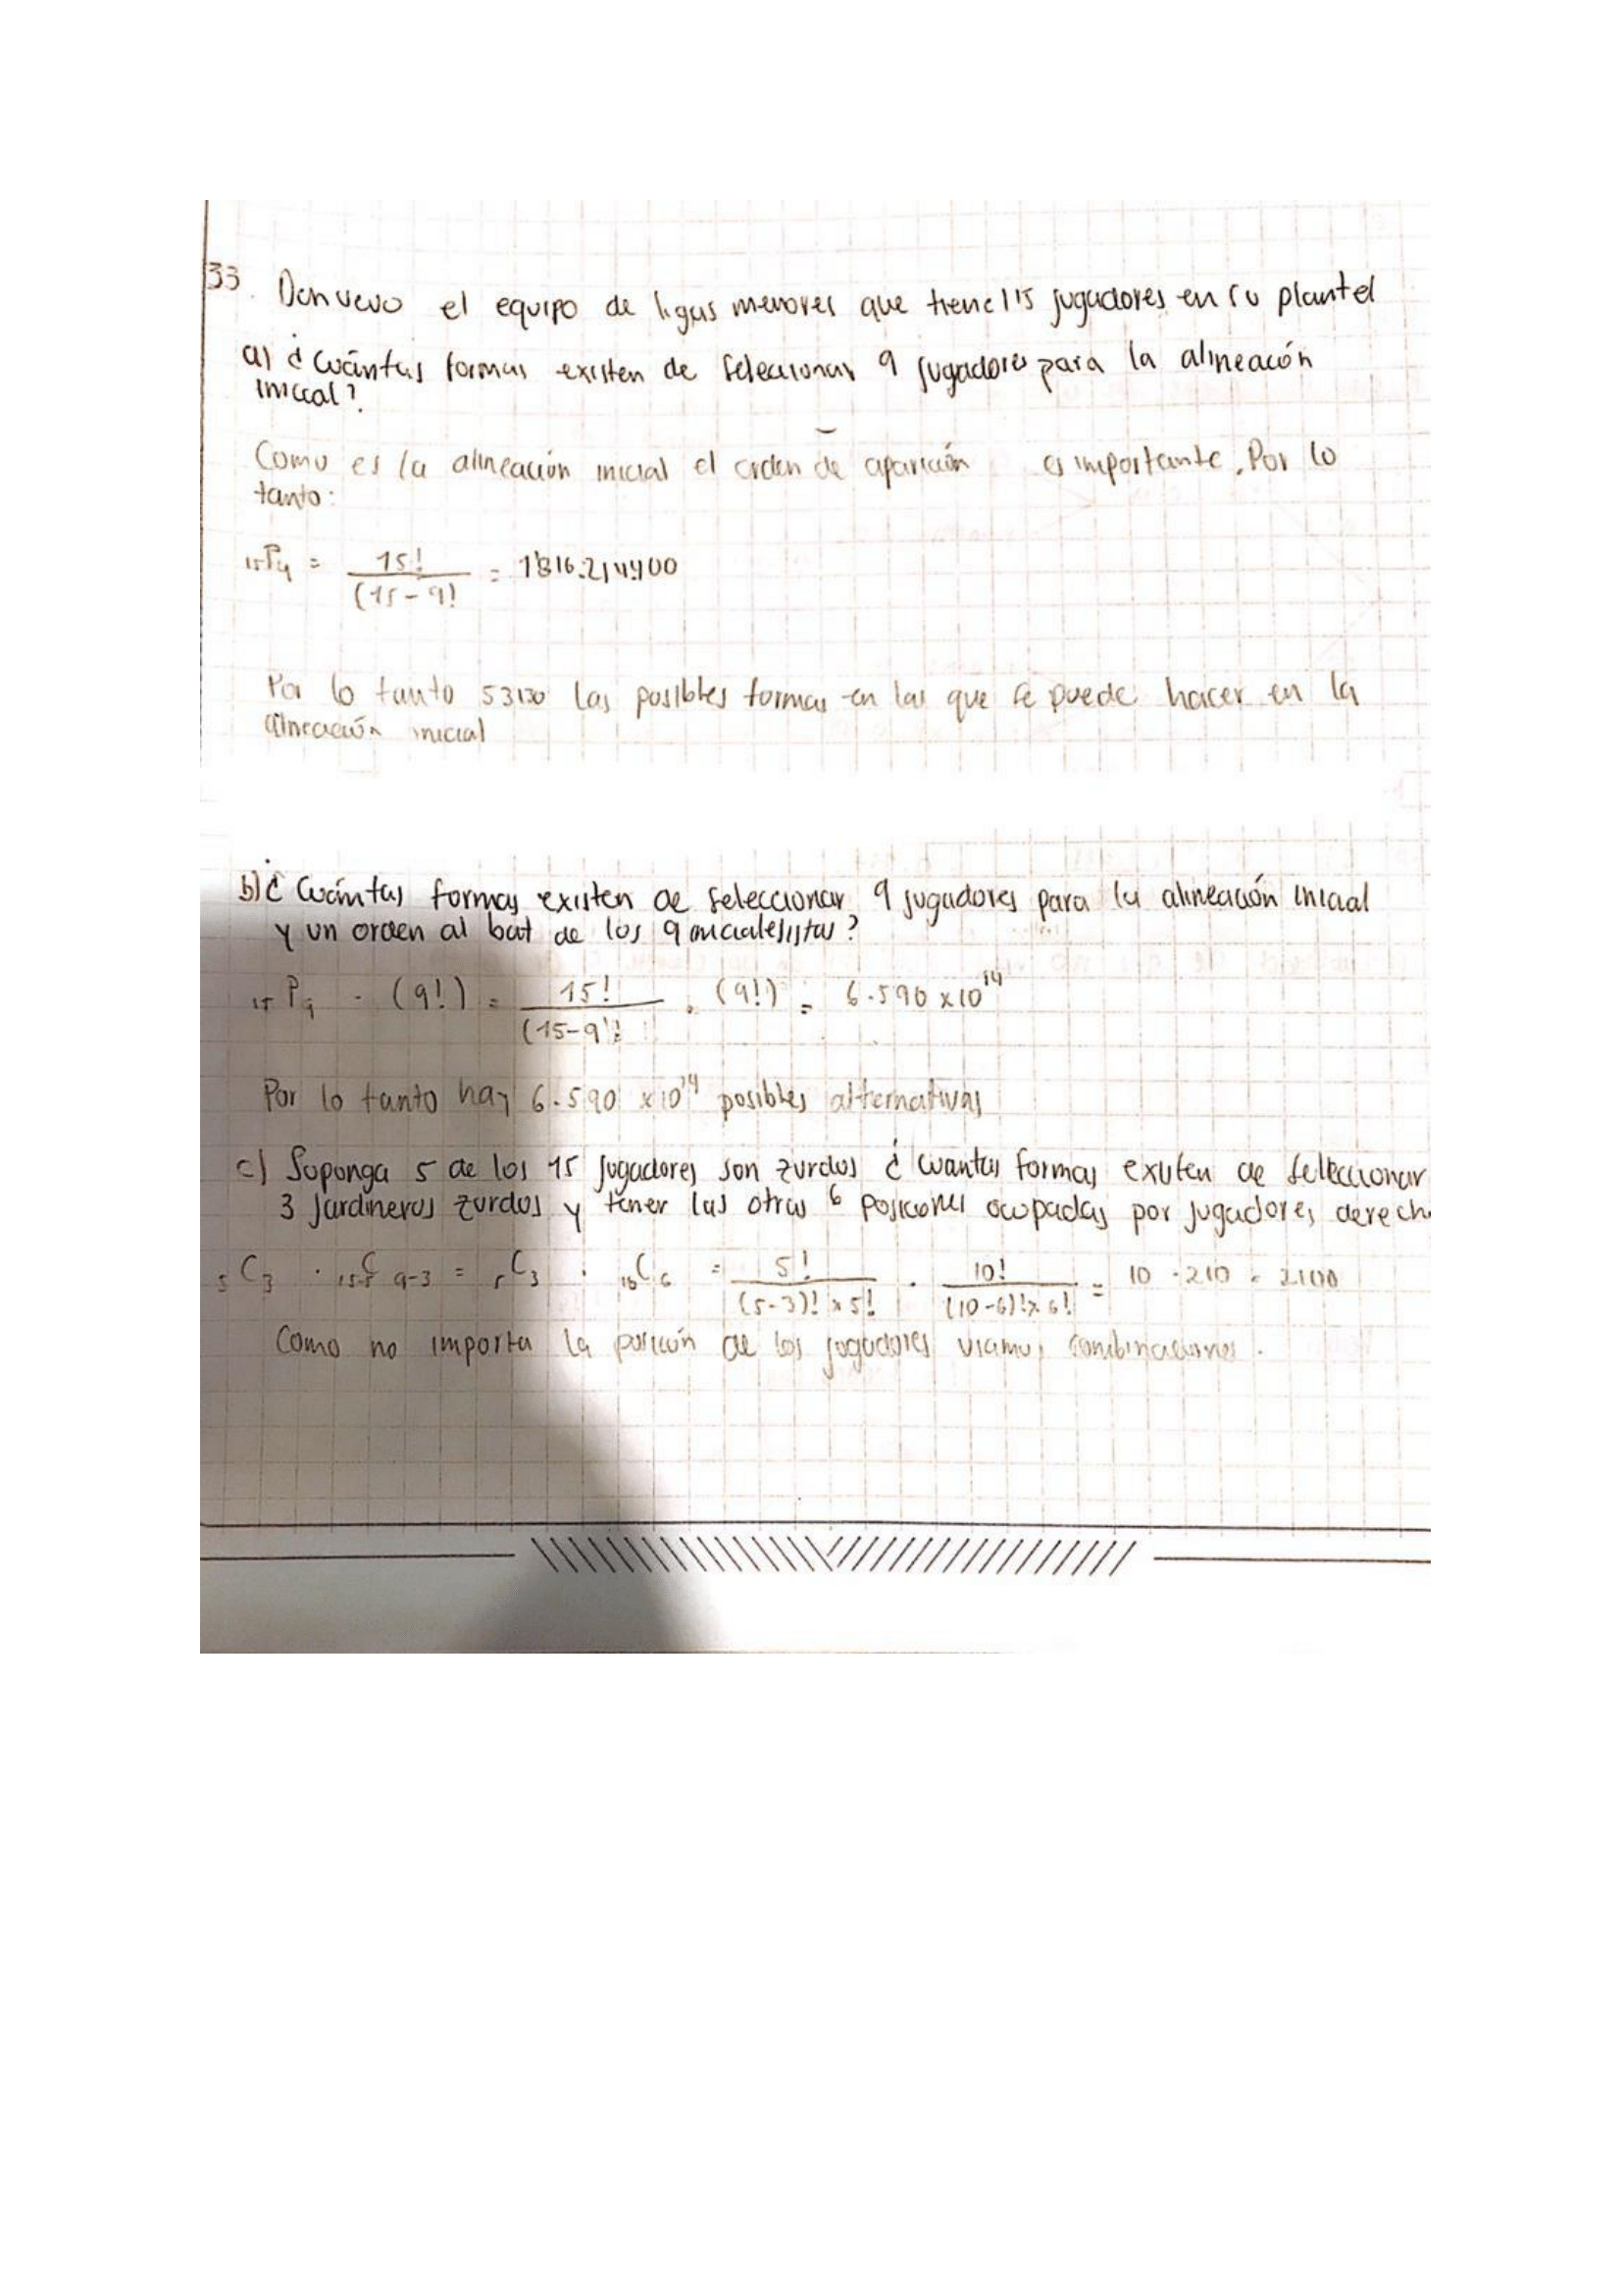 33. De nuevo el equipo de ligas menores que tiene 15 jugadores en su plantel
a) ¿Cuántas formas existen de seleccionar 9 jugadores para la alineación
inicial?
Como es la alineación inicial el orden de aparición es importante. Por lo
tanto:
15P9 = 15! / (15-9! = 1'816.214400
Por lo tanto 53130 las posibles formas en las que se puede hacer en la
alineación inicial
b) ¿Cuántas formas existen de seleccionar 9 jugadores para la alineación inicial
y un orden al bat de los 9
15P9 · (9!) = 15! / (15-9)! · (9!) = 6.590 x10^14
Por lo tanto hay 6.590 x10^14 posibles alternativas
c) Suponga 5 de los 15 jugadores son zurdos ¿Cuantas formas existen de seleccionar
3 jardineros zurdos y tener las otras 6 posiciones ocupadas por jugadores derech
5C3 · 15-5C9-3 = 5C3 · 10C6 = 5! / (5-3)! x 5! · 10! / (10-6)! x 6! = 10 · 210 = 2100
Como no importa la posición de los jugadores usamos combinaciones.